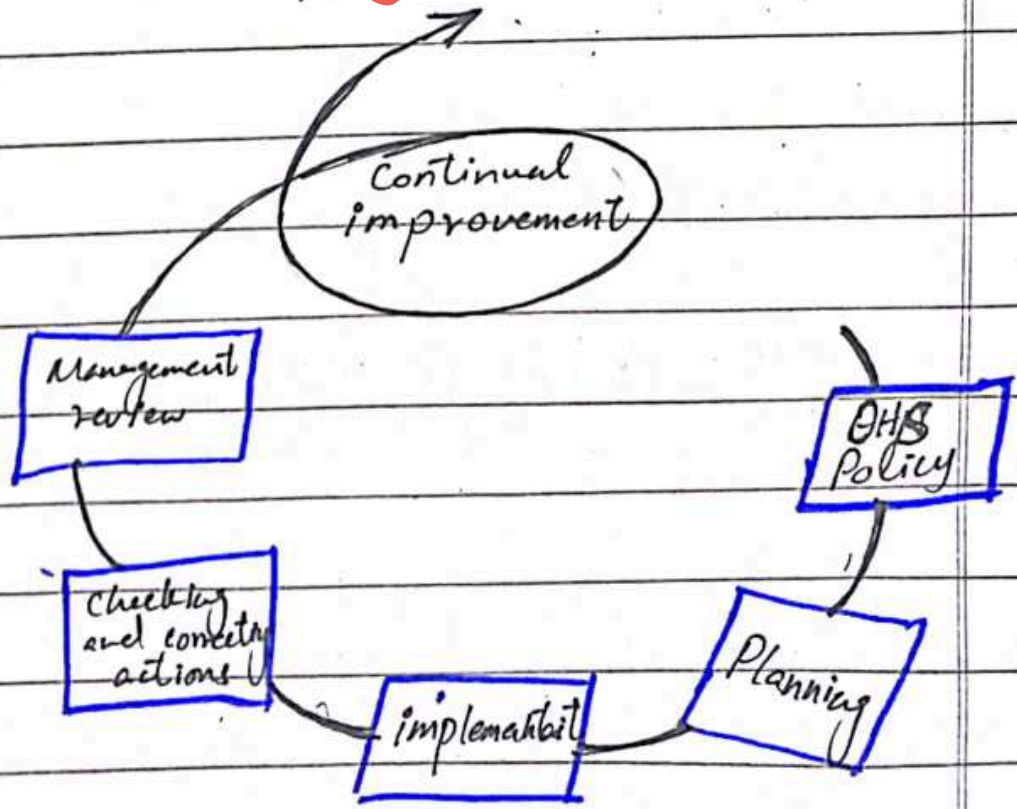 Continual
improvement
Management
review
OHS
Policy
checking
and correcting
actions
Planning
implemantbit